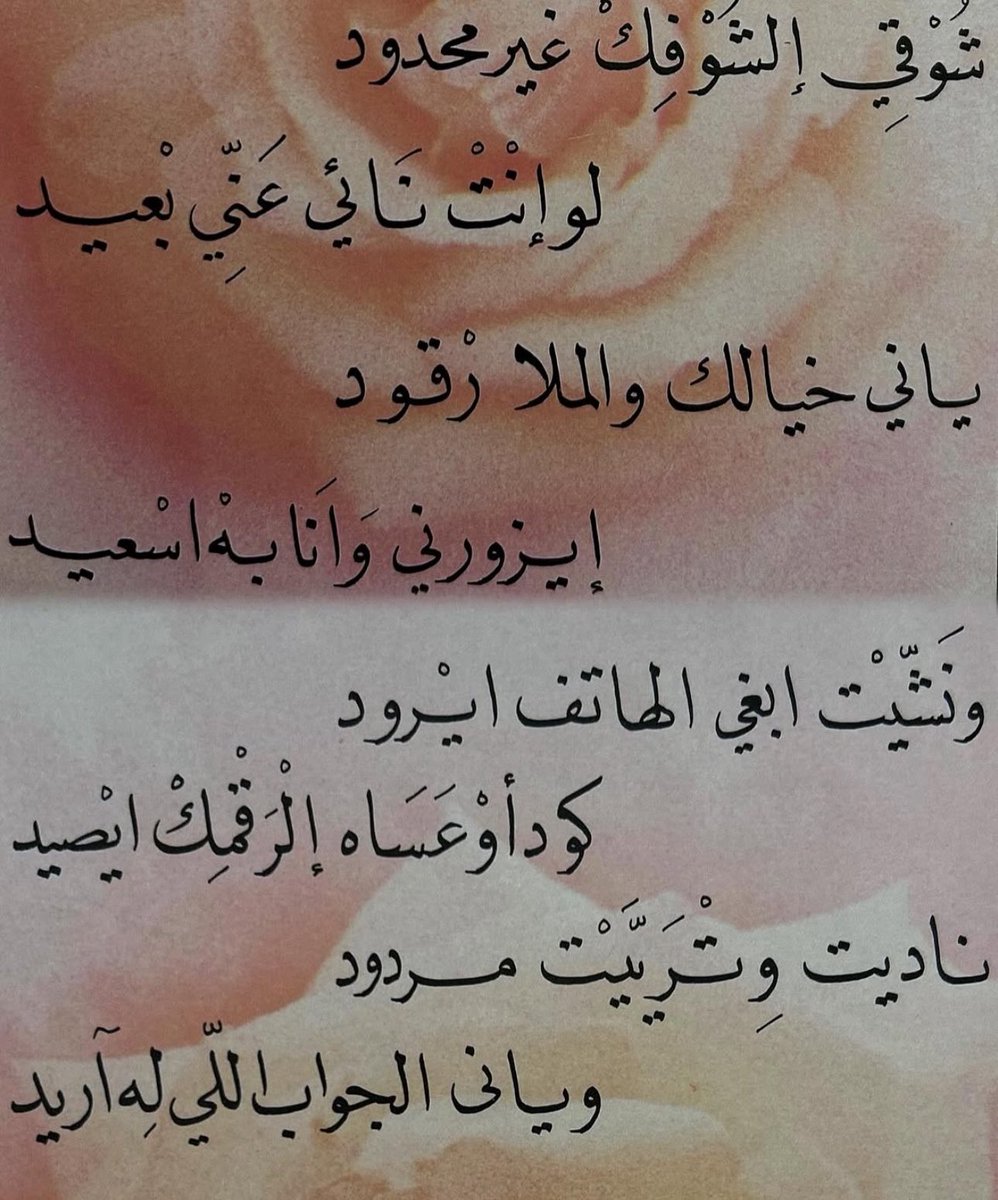 شُوْقِي إلشَوْفِكْ غير محدود
لو إنْتْ نَائي عَنِّي بْعيد
ياني خيالك والملا رْقود
إيزورني وَانَا بهْ اسْعيد
ونَشّيْت ابغي الهاتف ايْرود
كود أوْ عَسَاه إلْرَقْمِكْ ايْصيد
ناديت وِتْرَيَّيْت مردود
ويانى الجواب اللّي لِه آريد